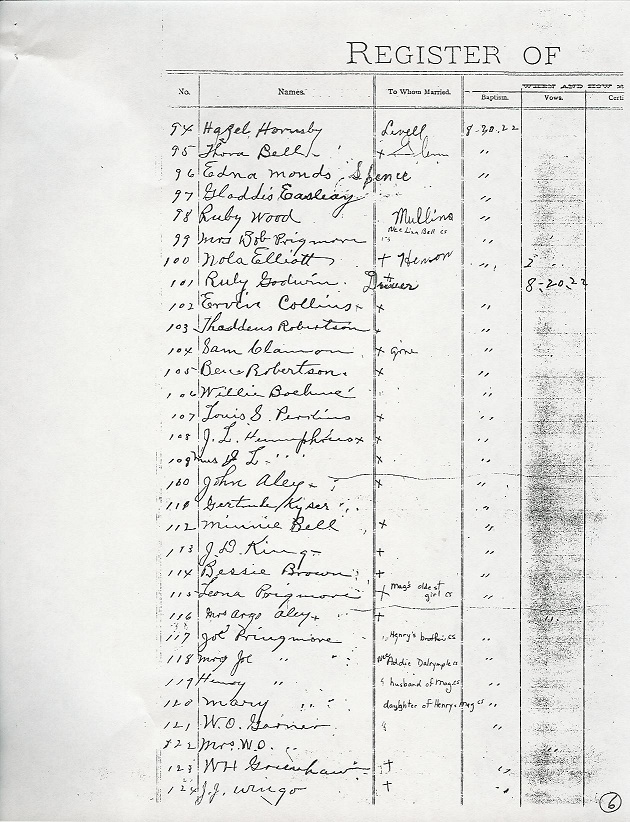 REGISTER OF
WHEN AND HOW
No. Names. To Whom Married. Baptism. Vows. Certi
94 Hazel Hornsby Livell 8-20.22
95 Thora Bell x Glenn "
96 Edna Monds Spence "
97 Gladdis Easleay "
98 Ruby Wood Mullins "
99 Mrs Bob Prigmore nee Liza Bell cs "
100 Nola Elliott + Henson "
101 Ruly Godwin Driver 8-20.22
102 Ervin Collins x "
103 Thaddeus Robertson x "
104 Sam Clamon x gone "
105 Ben Robertson x "
106 Willie Boehme "
107 Louis S. Perdins x "
108 J. L. Humphries x "
109 Mrs J L " x "
100 John Aley x "
110 Gertrude Kyser "
112 Minnie Bell x "
113 J. D. King + "
114 Bessie Brown + "
115 Leona Prigmore + Mag's oldest girl cs "
116 Mrs Argo Aley + "
117 Joe Pringmore Henry's brother cs "
118 Mrs Joe " " nee Addie Dalrymple cs "
119 Henry " husband of Mag cs "
120 Mary " " daughter of Henry & Mag cs "
121 W. O. Garner "
122 Mrs. W.O. " "
123 WH Greenhaw + "
124 J.J. Wingo + "
6